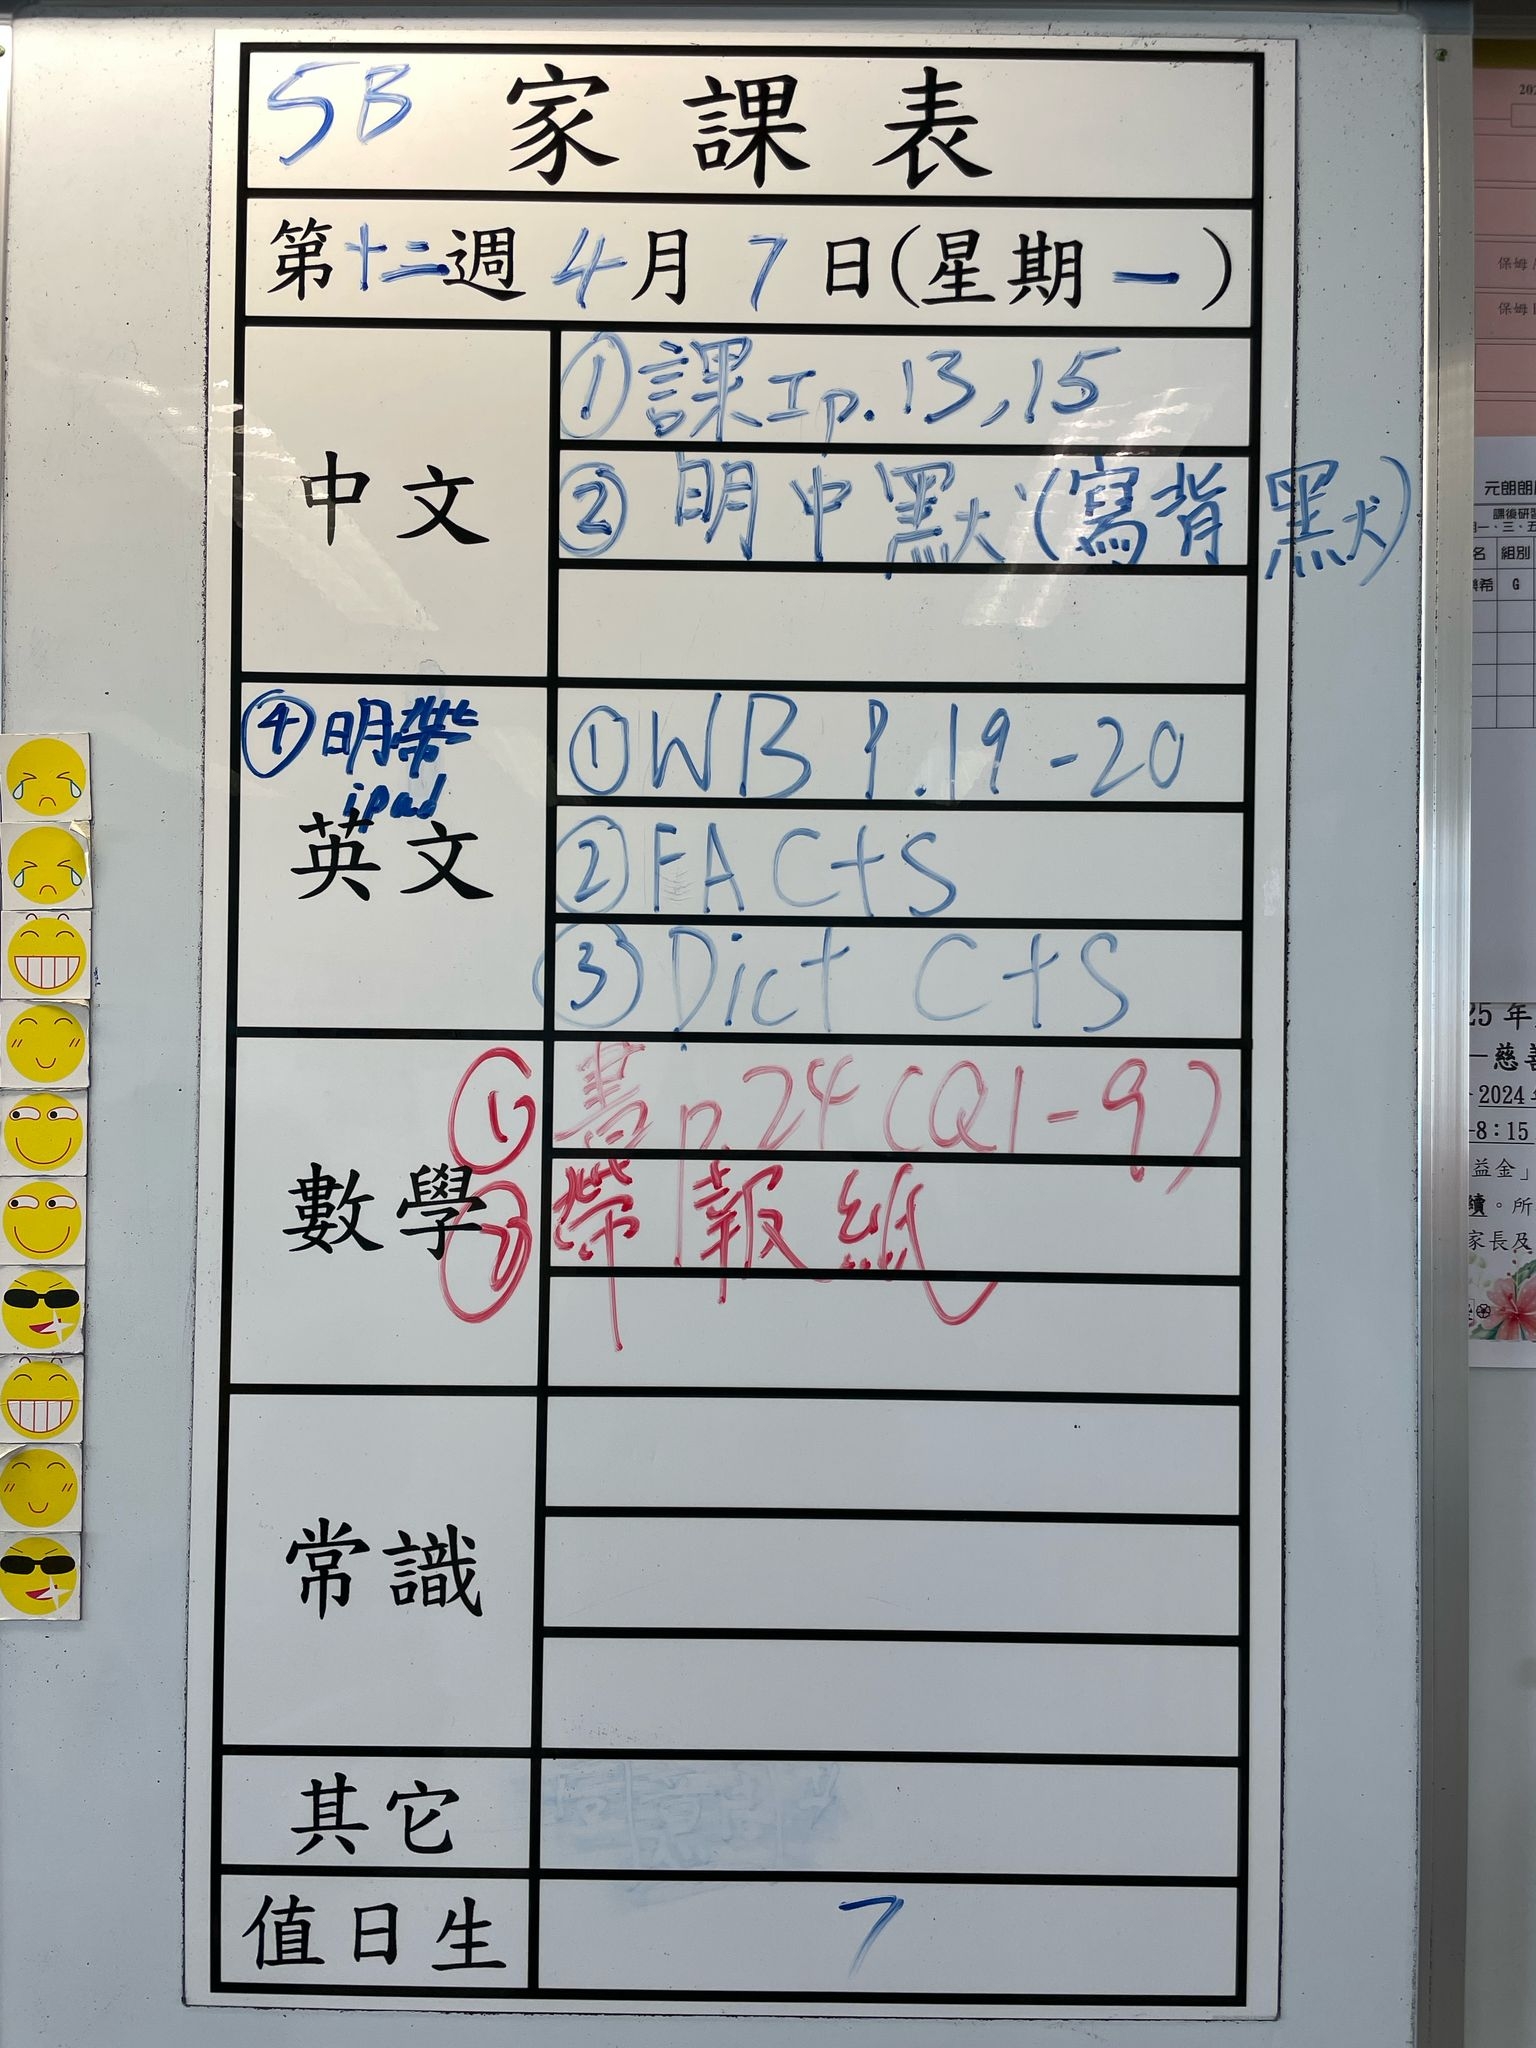 5B 家課表
第十二週 4月7日(星期一)
中文
①課工p.13,15
②明中默(寫背默)
英文
①WB P.19-20
②FA C+S
③Dict C+S
④明帶
ipad
數學
①書p.24(Q1-9)
②帶報紙
常識
其它
值日生 7
保姆
保姆
元朗朗
課後研習
一、三、五
名 組別
希 G
25 年
慈善
2024
8:15
益金」
續。所
家長及